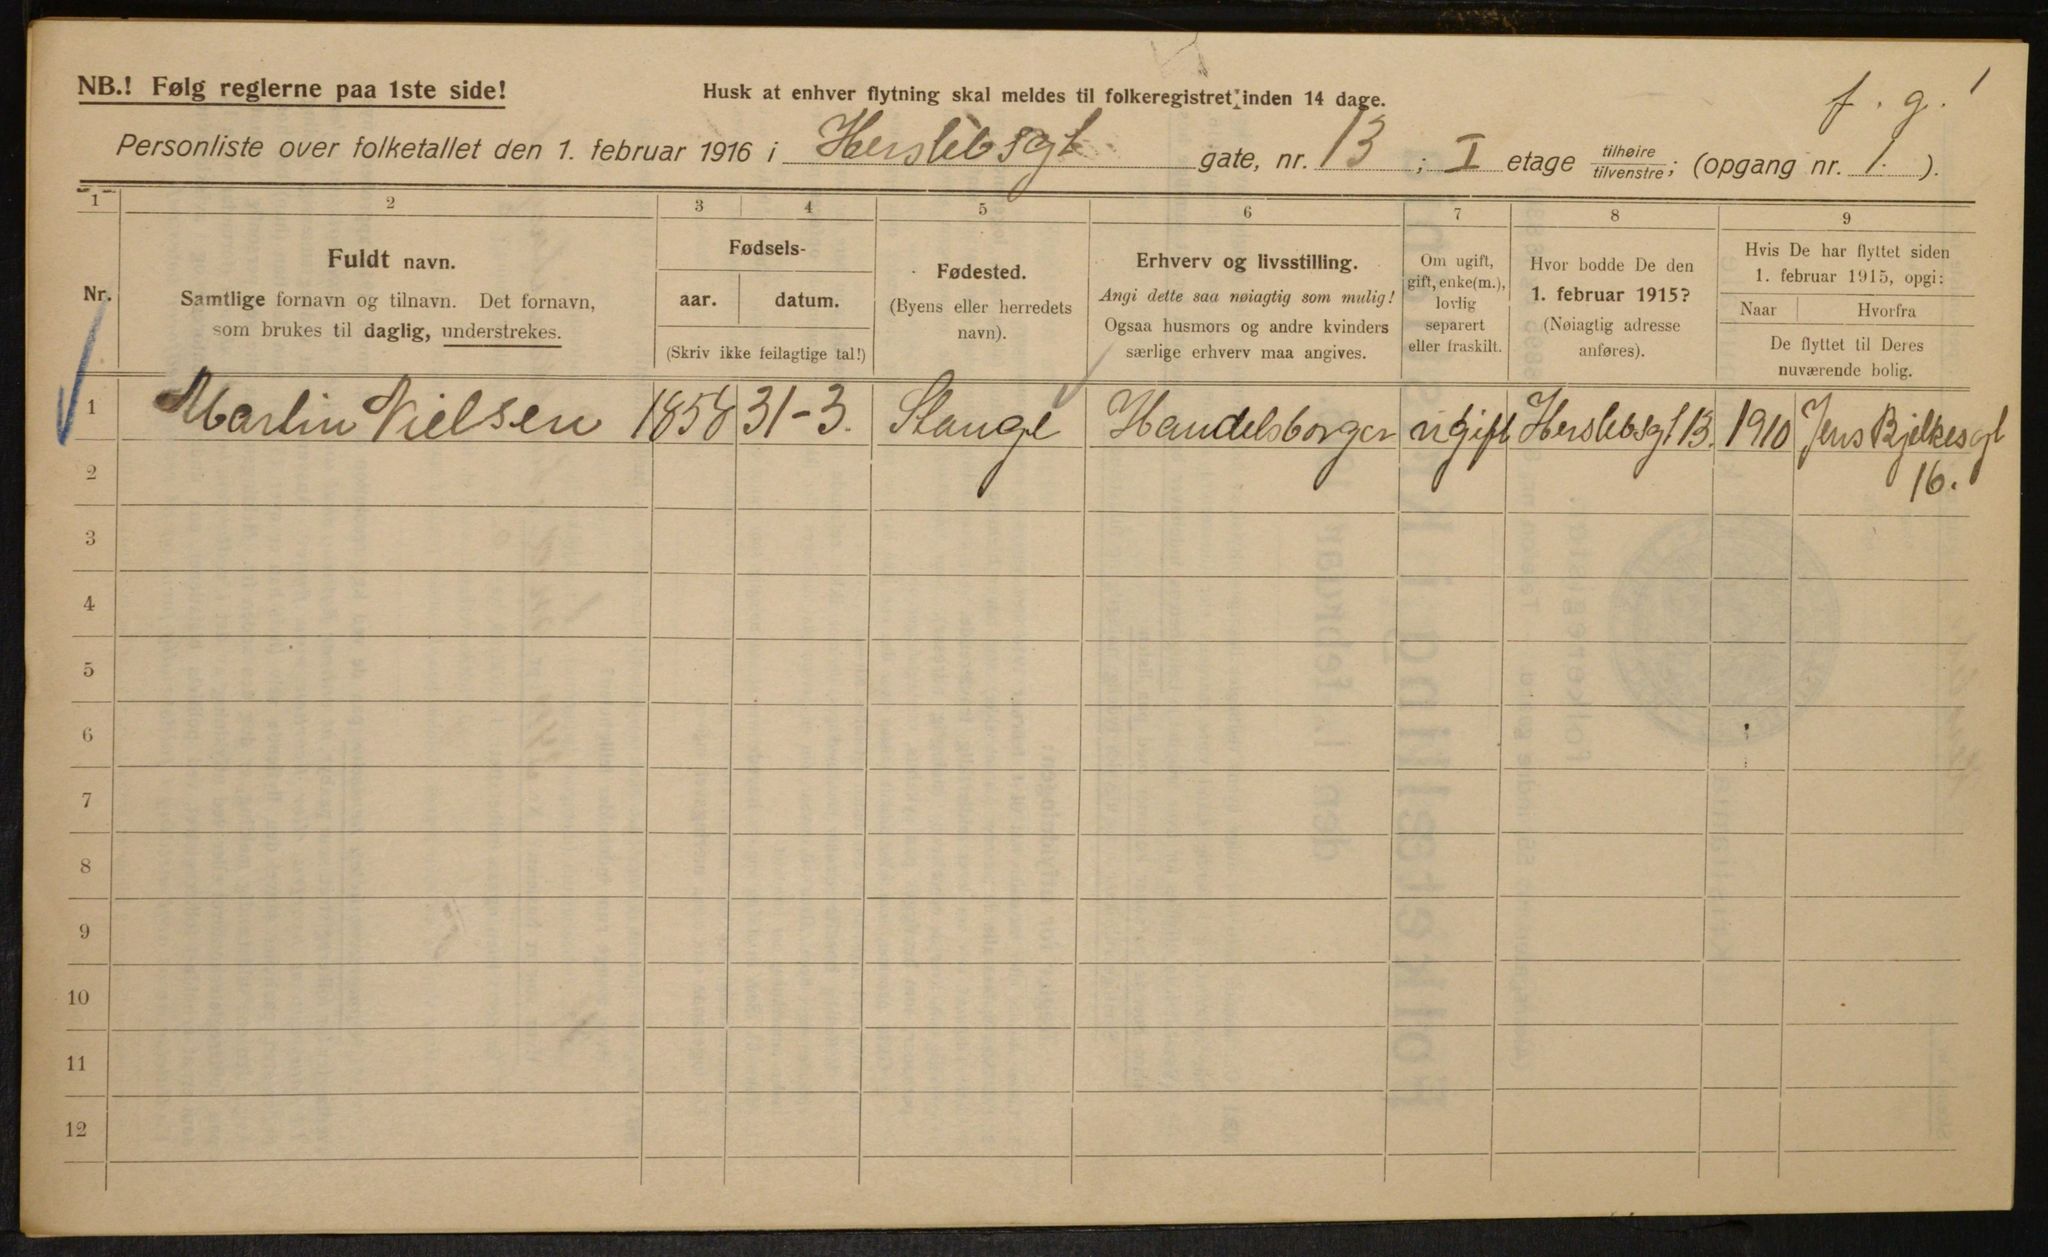 NB.! Følg reglerne paa 1ste side!
Husk at enhver flytning skal meldes til folkeregistret inden 14 dage.
f. g. 1
Personliste over folketallet den 1. februar 1916 i Herslebsgt gate, nr. 13; I etage tilhøire/tilvenstre; (opgang nr. 1.).
1 2 3 4 5 6 7 8 9
Nr.
Fuldt navn.
Samtlige fornavn og tilnavn. Det fornavn,
som brukes til daglig, understrekes.
Fødsels-
aar. datum.
(Skriv ikke feilagtige tal!)
Fødested.
(Byens eller herredets
navn).
Erhverv og livsstilling.
Angi dette saa nøiagtig som mulig!
Ogsaa husmors og andre kvinders
særlige erhverv maa angives.
Om ugift,
gift, enke(m.),
lovlig
separert
eller fraskilt.
Hvor bodde De den
1. februar 1915?
(Nøiagtig adresse
anføres).
Hvis De har flyttet siden
1. februar 1915, opgi:
Naar Hvorfra
De flyttet til Deres
nuværende bolig.
1 Martin Nielsen 1858 31-3. Stange Handelsborger ugift Herslebsgt 13. 1910 Jens Bjelkesgt
2 16.
3
4
5
6
7
8
9
10
11
12